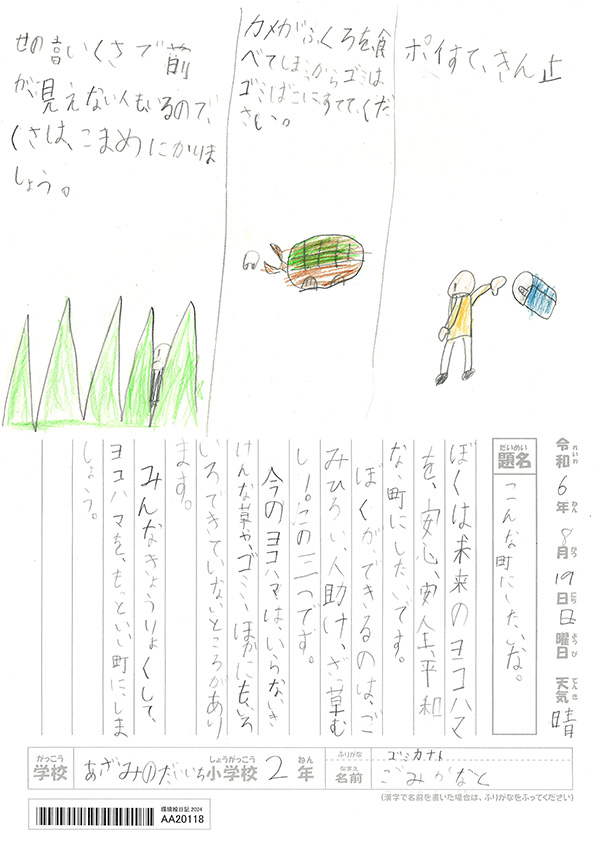 ポイすて、きん止
カメがふくろを食
べてしまうからゴミは
ゴミばこにすてて、くだ
さい。
せの高いくさで前
が、見えない人もいるので、
くさは、こまめにかりま
しょう。
令和6年8月19日日曜日 天気晴
れいわ ねん がつ にち ようび てんき
だいめい
題名 こんな町にしたいな。
ぼくは未来のヨコハマ
を、安心、安全、平和
な、町にしたいです。
ぼくが、できるのは、ご
みひろい、人助け、ざっ草む
しり。この三つです。
今のヨコハマは、いらない
けんな草や、ゴミ、ほかにも、いろ
いろできていないところがあり
ます。
みんなきょうりょくして、
ヨコハマを、もっといい町に、しま
しょう。
がっこう しょうがっこう ねん
学校 あざみのだいいち小学校 2年
ふりがな ゴミカナト
なまえ
名前 ごみかなと
(漢字で名前を書いた場合は、ふりがなをふってください)
環境絵日記 2024
AA20118